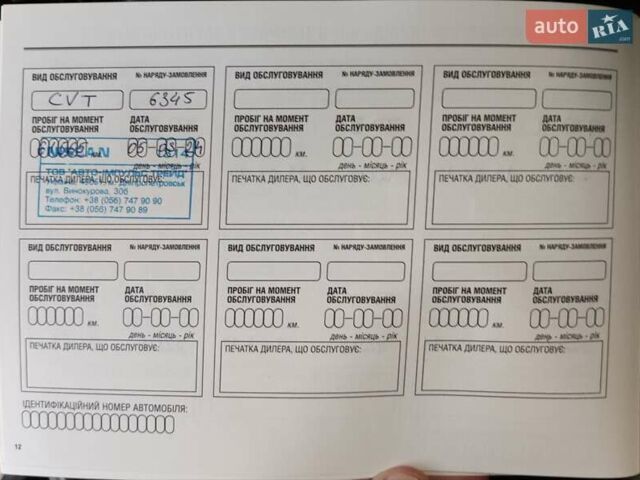 auto RIA.com
ВИД ОБСЛУГОВУВАННЯ № НАРЯДУ-ЗАМОВЛЕННЯ
CVT 6345
ПРОБІГ НА МОМЕНТ ОБСЛУГОВУВАННЯ ДАТА ОБСЛУГОВУВАННЯ
км. день - місяць - рік
ПЕЧАТКА ДИЛЕРА, ЩО ОБСЛУГОВУЄ:
NISSAN
ТОВ "АВТО-ІМПУЛЬС ТРЕЙД"
Дніпропетровськ
вул. Винокурова, 30б
Телефон: +38 (056) 747 90 90
Факс: +38 (056) 747 90 89
ВИД ОБСЛУГОВУВАННЯ № НАРЯДУ-ЗАМОВЛЕННЯ
ПРОБІГ НА МОМЕНТ ОБСЛУГОВУВАННЯ ДАТА ОБСЛУГОВУВАННЯ
км. день - місяць - рік
ПЕЧАТКА ДИЛЕРА, ЩО ОБСЛУГОВУЄ:
ВИД ОБСЛУГОВУВАННЯ № НАРЯДУ-ЗАМОВЛЕННЯ
ПРОБІГ НА МОМЕНТ ОБСЛУГОВУВАННЯ ДАТА ОБСЛУГОВУВАННЯ
км. день - місяць - рік
ПЕЧАТКА ДИЛЕРА, ЩО ОБСЛУГОВУЄ:
ВИД ОБСЛУГОВУВАННЯ № НАРЯДУ-ЗАМОВЛЕННЯ
ПРОБІГ НА МОМЕНТ ОБСЛУГОВУВАННЯ ДАТА ОБСЛУГОВУВАННЯ
км. день - місяць - рік
ПЕЧАТКА ДИЛЕРА, ЩО ОБСЛУГОВУЄ:
ВИД ОБСЛУГОВУВАННЯ № НАРЯДУ-ЗАМОВЛЕННЯ
ПРОБІГ НА МОМЕНТ ОБСЛУГОВУВАННЯ ДАТА ОБСЛУГОВУВАННЯ
км. день - місяць - рік
ПЕЧАТКА ДИЛЕРА, ЩО ОБСЛУГОВУЄ:
ВИД ОБСЛУГОВУВАННЯ № НАРЯДУ-ЗАМОВЛЕННЯ
ПРОБІГ НА МОМЕНТ ОБСЛУГОВУВАННЯ ДАТА ОБСЛУГОВУВАННЯ
км. день - місяць - рік
ПЕЧАТКА ДИЛЕРА, ЩО ОБСЛУГОВУЄ:
ІДЕНТИФІКАЦІЙНИЙ НОМЕР АВТОМОБІЛЯ:
12